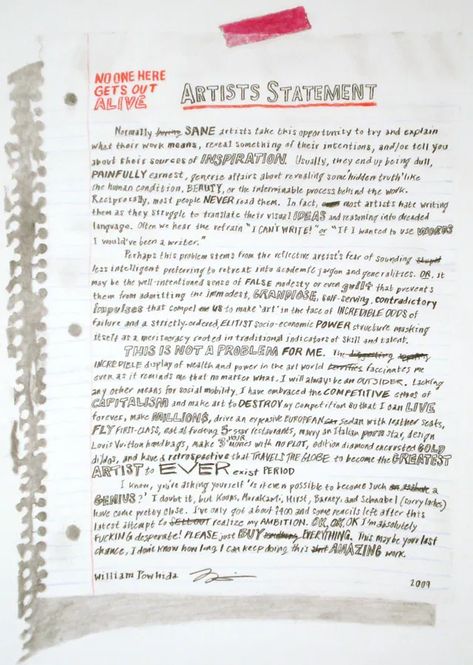 NO ONE HERE
GETS OUT
ALIVE
ARTISTS STATEMENT
Normally boring SANE artists take this opportunity to try and explain
what their work means, reveal something of their intentions, and/or tell you
about their sources of INSPIRATION. Usually, they end up being dull,
PAINFULLY earnest, generic affairs about revealing some 'hidden truth' like
the human condition, BEAUTY, or the interminable process behind the work.
Reciprocally, most people NEVER read them. In fact, most artists hate writing
them as they struggle to translate their visual IDEAS and reasoning into dreaded
language. Often we hear the refrain "I CAN'T WRITE!" or "IF I wanted to use WORDS
I would've been a writer."
Perhaps this problem stems from the reflective artist's fear of sounding
less intelligent preferring to retreat into academic jargon and generalities. OR, it
may be the well-intentioned sense of FALSE modesty or even guilt that prevents
them from admitting the immodest, GRANDIOSE, self-serving, contradictory
impulses that compel me us to make 'art' in the face of INCREDIBLE ODDS of
failure and a strictly-ordered, ELITIST socio-economic POWER structure masking
itself as a meritocracy rooted in traditional indicators of skill and talent.
THIS IS NOT A PROBLEM FOR ME. The
INCREDIBLE display of wealth and power in the art world terrifies fascinates me
even as it reminds me that no matter what, I will always be an OUTSIDER. Lacking
any other means for social mobility, I have embraced the COMPETITIVE ethos of
CAPITALISM and make art to DESTROY my competition so that I can LIVE
forever, make MILLIONS, drive an expensive EUROPEAN car sedan with leather seats,
FLY FIRST-CLASS, eat at fucking 5-star restaurants, marry an Italian porn star, design
Louis Vuitton handbags, make 3 HOUR movies with no PLOT, edition diamond encrusted GOLD
dildos, and have a retrospective that TRAVELS THE GLOBE to become the GREATEST
ARTIST to EVER exist PERIOD
I know, you're asking yourself 'Is it even possible to become such a
GENIUS?' I doubt it, but Koons, Murakami, Hirst, Barney, and Schnabel (sorry ladies)
have come pretty close. I've only got about and some pencils left after this
latest attempt to sell out realize my AMBITION. OK, OK, OK I'm absolutely
FUCKING desperate! PLEASE just BUY EVERYTHING. This may be your last
chance, I don't know how long I can keep doing this AMAZING work.
William Powhida
2009